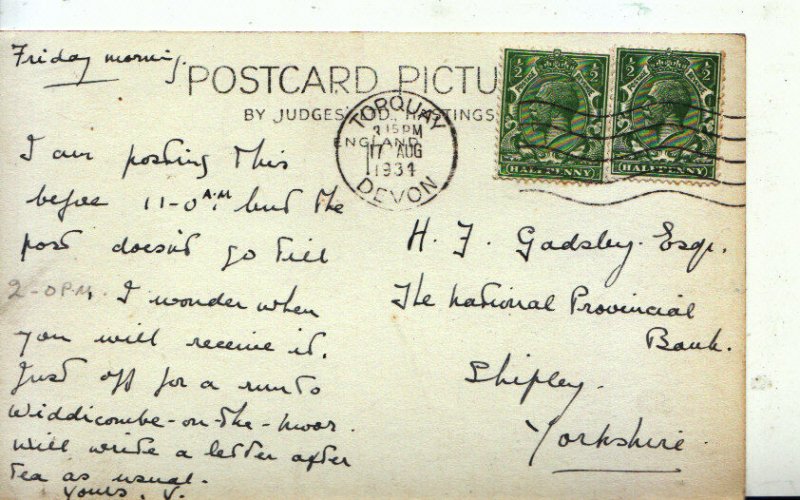 Friday morning.
POSTCARD PICTU
BY JUDGES' LTD., HASTINGS,
ENGLAND.
½ ½
HALFPENNY
½ ½
HALFPENNY
TORQUAY
3 15PM
17 AUG
1934
DEVON
I am posting this
before 11-0 A.M. but the
post doesn't go till
2-0 P.M. I wonder when
you will receive it.
Just off for a run to
Widdicombe-on-the-moor.
Will write a letter after
tea as usual.
Yours, V.
H. J. Gadsley. Esqr.
The National Provincial
Bank.
Shipley.
Yorkshire.